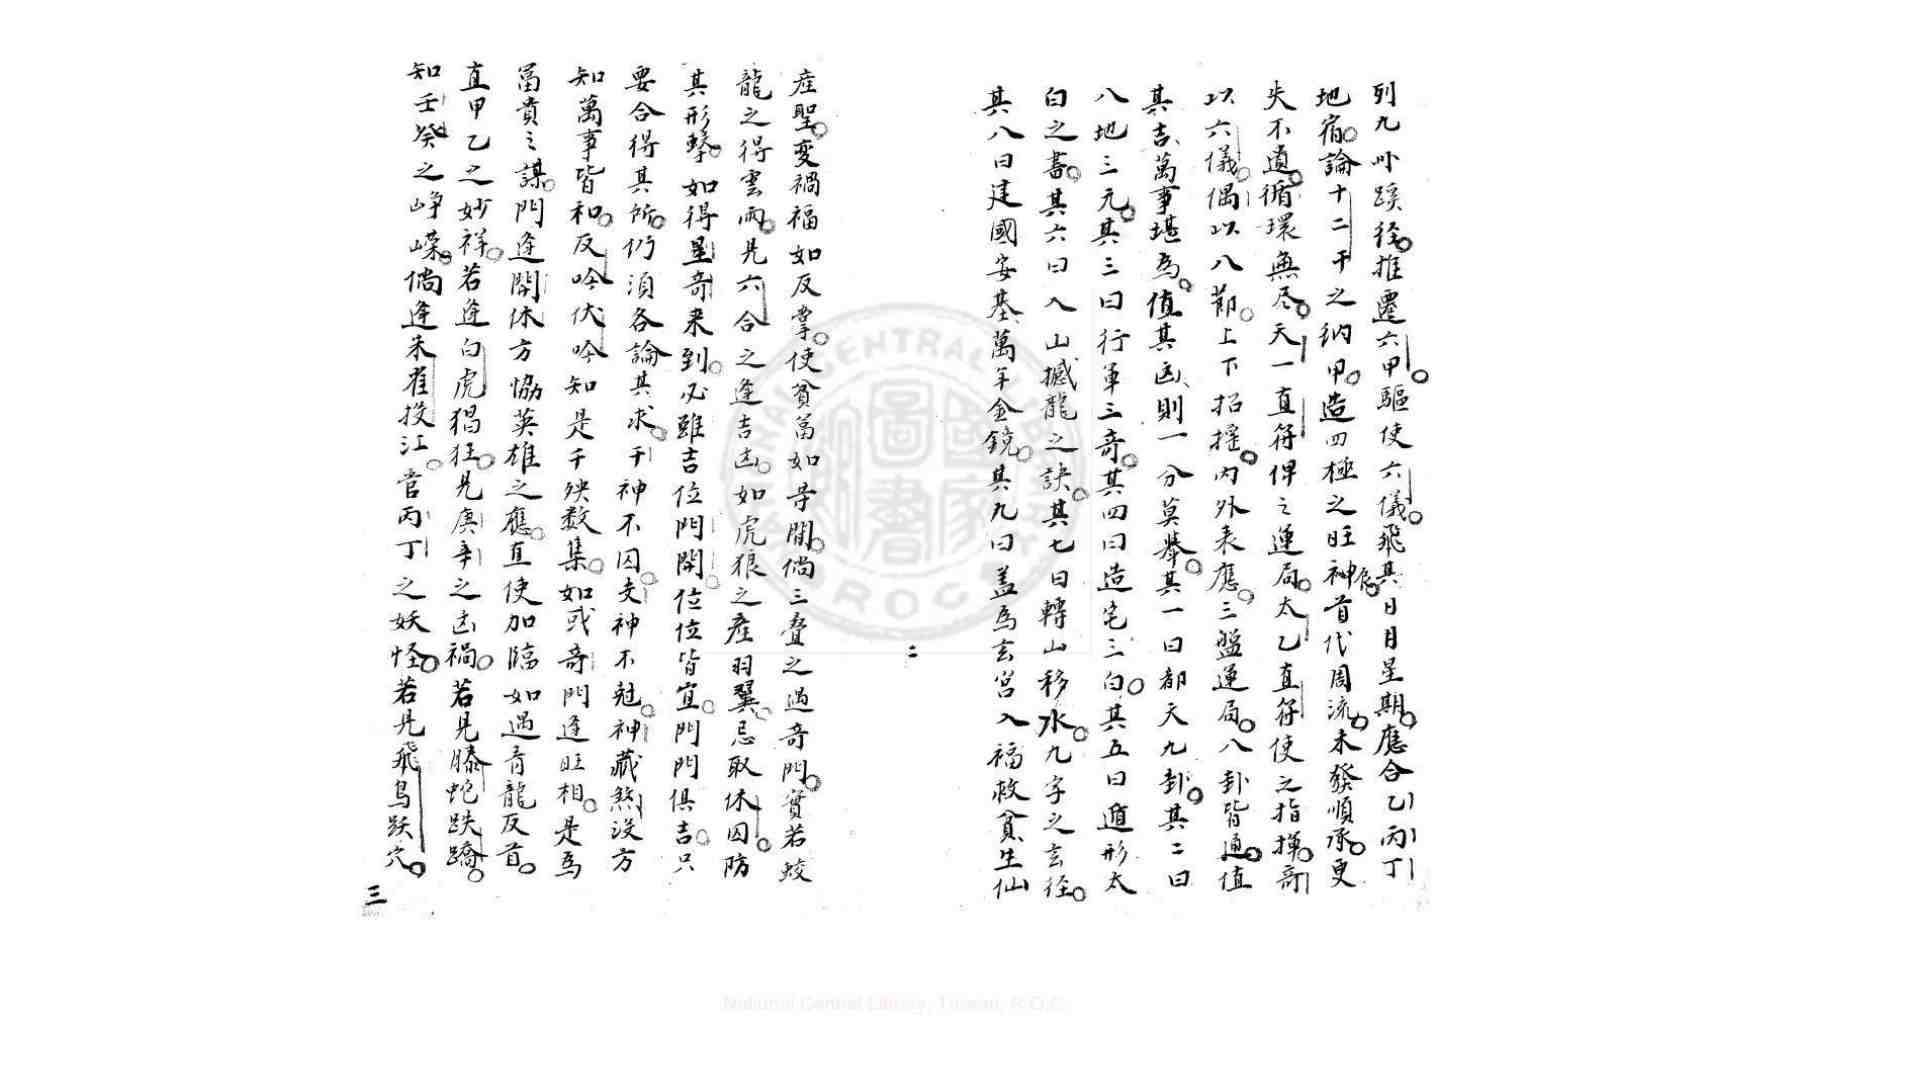 列九州蹊徑推遷六甲驅使六儀飛其日月星期應合乙丙丁
地宿論十二干之納甲造四極之旺神首代周流未發順承更
失不遺循環無尽天一直符俾之運局太乙直符使之指揮奇
以六儀偶以八節上下招搖内外表應三盤運局八卦皆通值
其吉萬事堪為值其凶則一分莫舉其一曰都天九卦其二曰
八地三元其三曰行軍三奇其四曰造宅三白其五曰遁形太
白之書其六曰入山撼龍之訣其七曰轉山移水九字之玄徑
其八曰建國安基萬年金鏡其九曰盖為玄宮入福救貧生仙
二
産聖變禍福如反掌使貧富如等閒倘三叠之遇奇門實若蛟
龍之得雲雨見六合之逢吉凶如虎狼之産羽翼忌取休囚防
其形擊如得星奇来到必雖吉位門開位位皆宜門門俱吉只
要合得其所仍須各論其求干神不囚支神不尅神藏煞没方
知萬事皆和反吟伏吟知是千殃数集如或奇門逢旺相是為
富貴之謀門逢開休方恊英雄之應直使加臨如遇青龍反首
直甲乙之妙祥若逢白虎猖狂見庚辛之凶禍若見螣蛇跌蹻
知壬癸之崢嶸倘逢朱雀投江當丙丁之妖怪若見飛鳥跌穴
三
National Central Library, Taiwan, R.O.C.